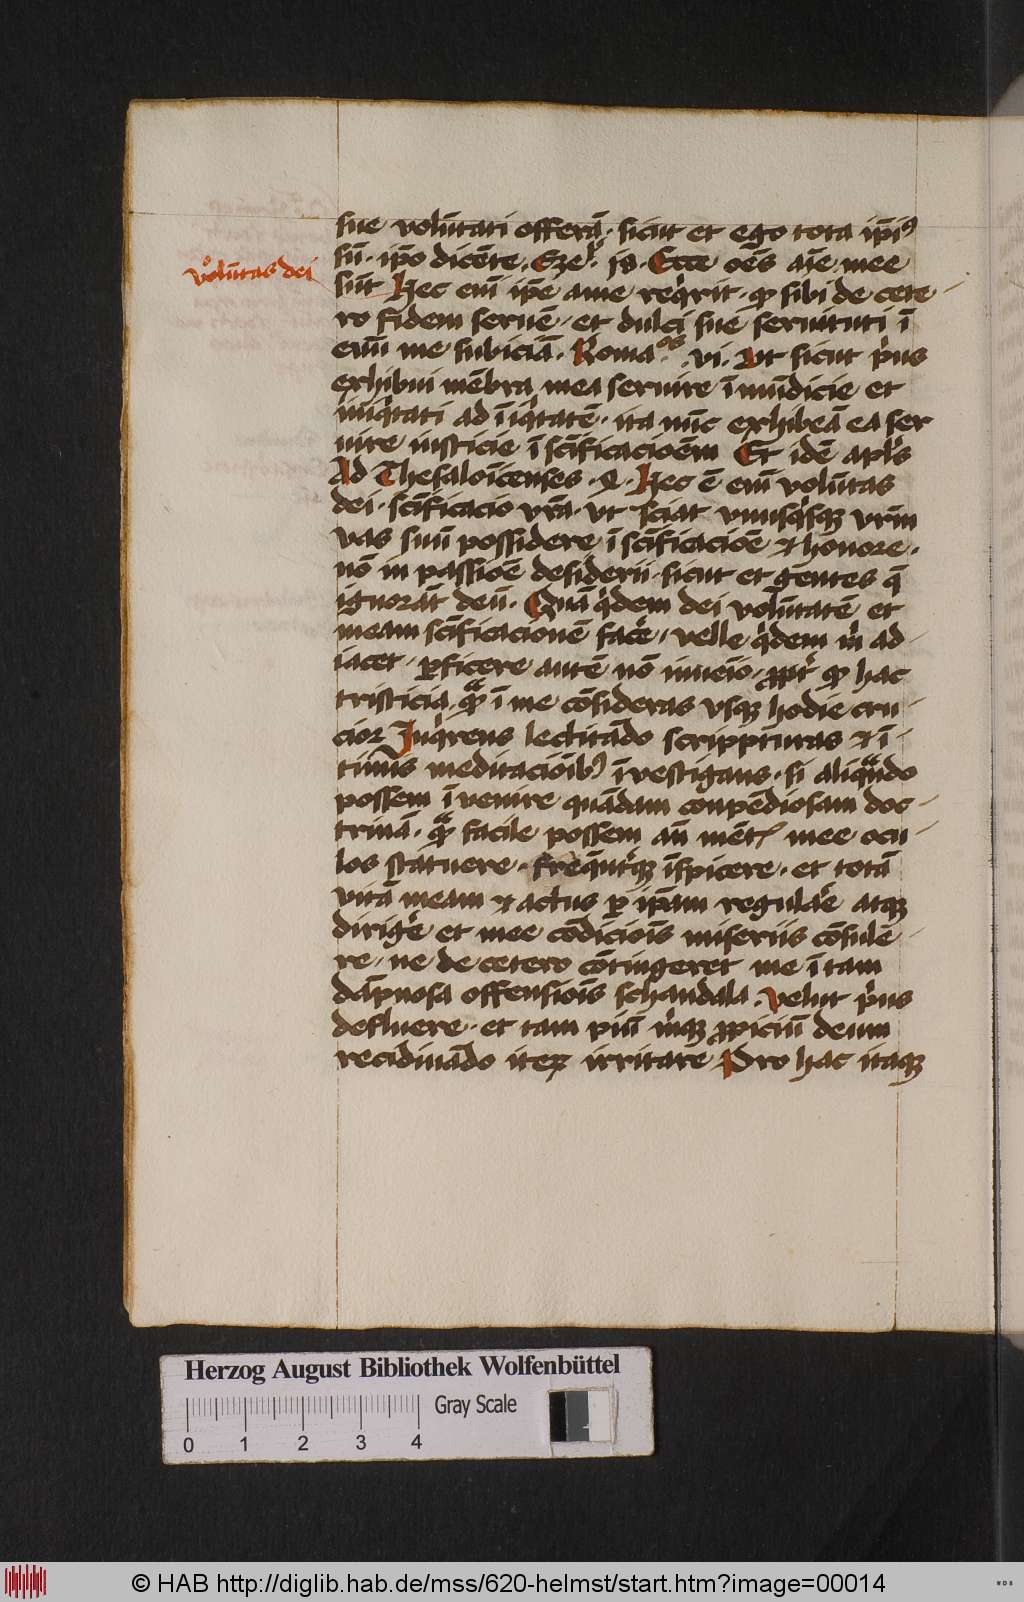 sue volūtati offerā· sicut et ego tota ip̄iꝰ
sū· ip̄o dicēte. Eze. 18. Ecce oēs aīe mee
volūtas dei
sūt Hec eim̄ ip̄e a me reqͥrit· ꝙ sibi de cete
ro fidem seruē· et dulci sue seruituti ī
euū me subiciā. Roma. vi. Ut sicut pͥus
exhibui mēbra mea seruire īmūdicie et
iniqͥtati ad īiqͥtatē· ita nūc exhibeā ea ser
uire iusticie ī scīficacioēm Et idē apl̄s
Ad Thesaloīcenses. Hec ē eim̄ volūtas
dei· scīficacio vr̄a· vt sciat vnusqͥsqꝫ vr̄m
vas suū possidere ī scīficacioē et honore.
nō in passioē desiderii· sicut et gentes q̄
ignorāt deū. Quā qͥdem dei volūtatē et
meam scīficacionē facͤe· velle qͥdem mͥ ad
iacet· ꝑficere autē nō inueīo· ꝓptͥ ꝙ hac
tristicia quā ī me cōsideras vsqꝫ hodie cru
cior Inqͥrens lectitādo scrippturas et ī
timis meditacioībꝰ īvestigans· si aliquādo
possem īvenire quādam conpēdiosam doc
trinā· quā facile possem an̄ mētꝭ mee ocu
los statuere· frequētͥqꝫ īspicere· et totā
vitā meam et actus ꝑ ip̄am regularͤe atqꝫ
dirigͤe et mee cōdicioīs miseriis cōsulē
re· ne de cetero cōtingeret me ī tam
dāpnosa offensioīs schandala. velut pͥus
defluere· et tam piū mͥqꝫ ꝓpiciū deum
recidiuādo iteꝝ irritare Pro hac itaqꝫ
Herzog August Bibliothek Wolfenbüttel
Gray Scale
0 1 2 3 4
© HAB http://diglib.hab.de/mss/620-helmst/start.htm?image=00014